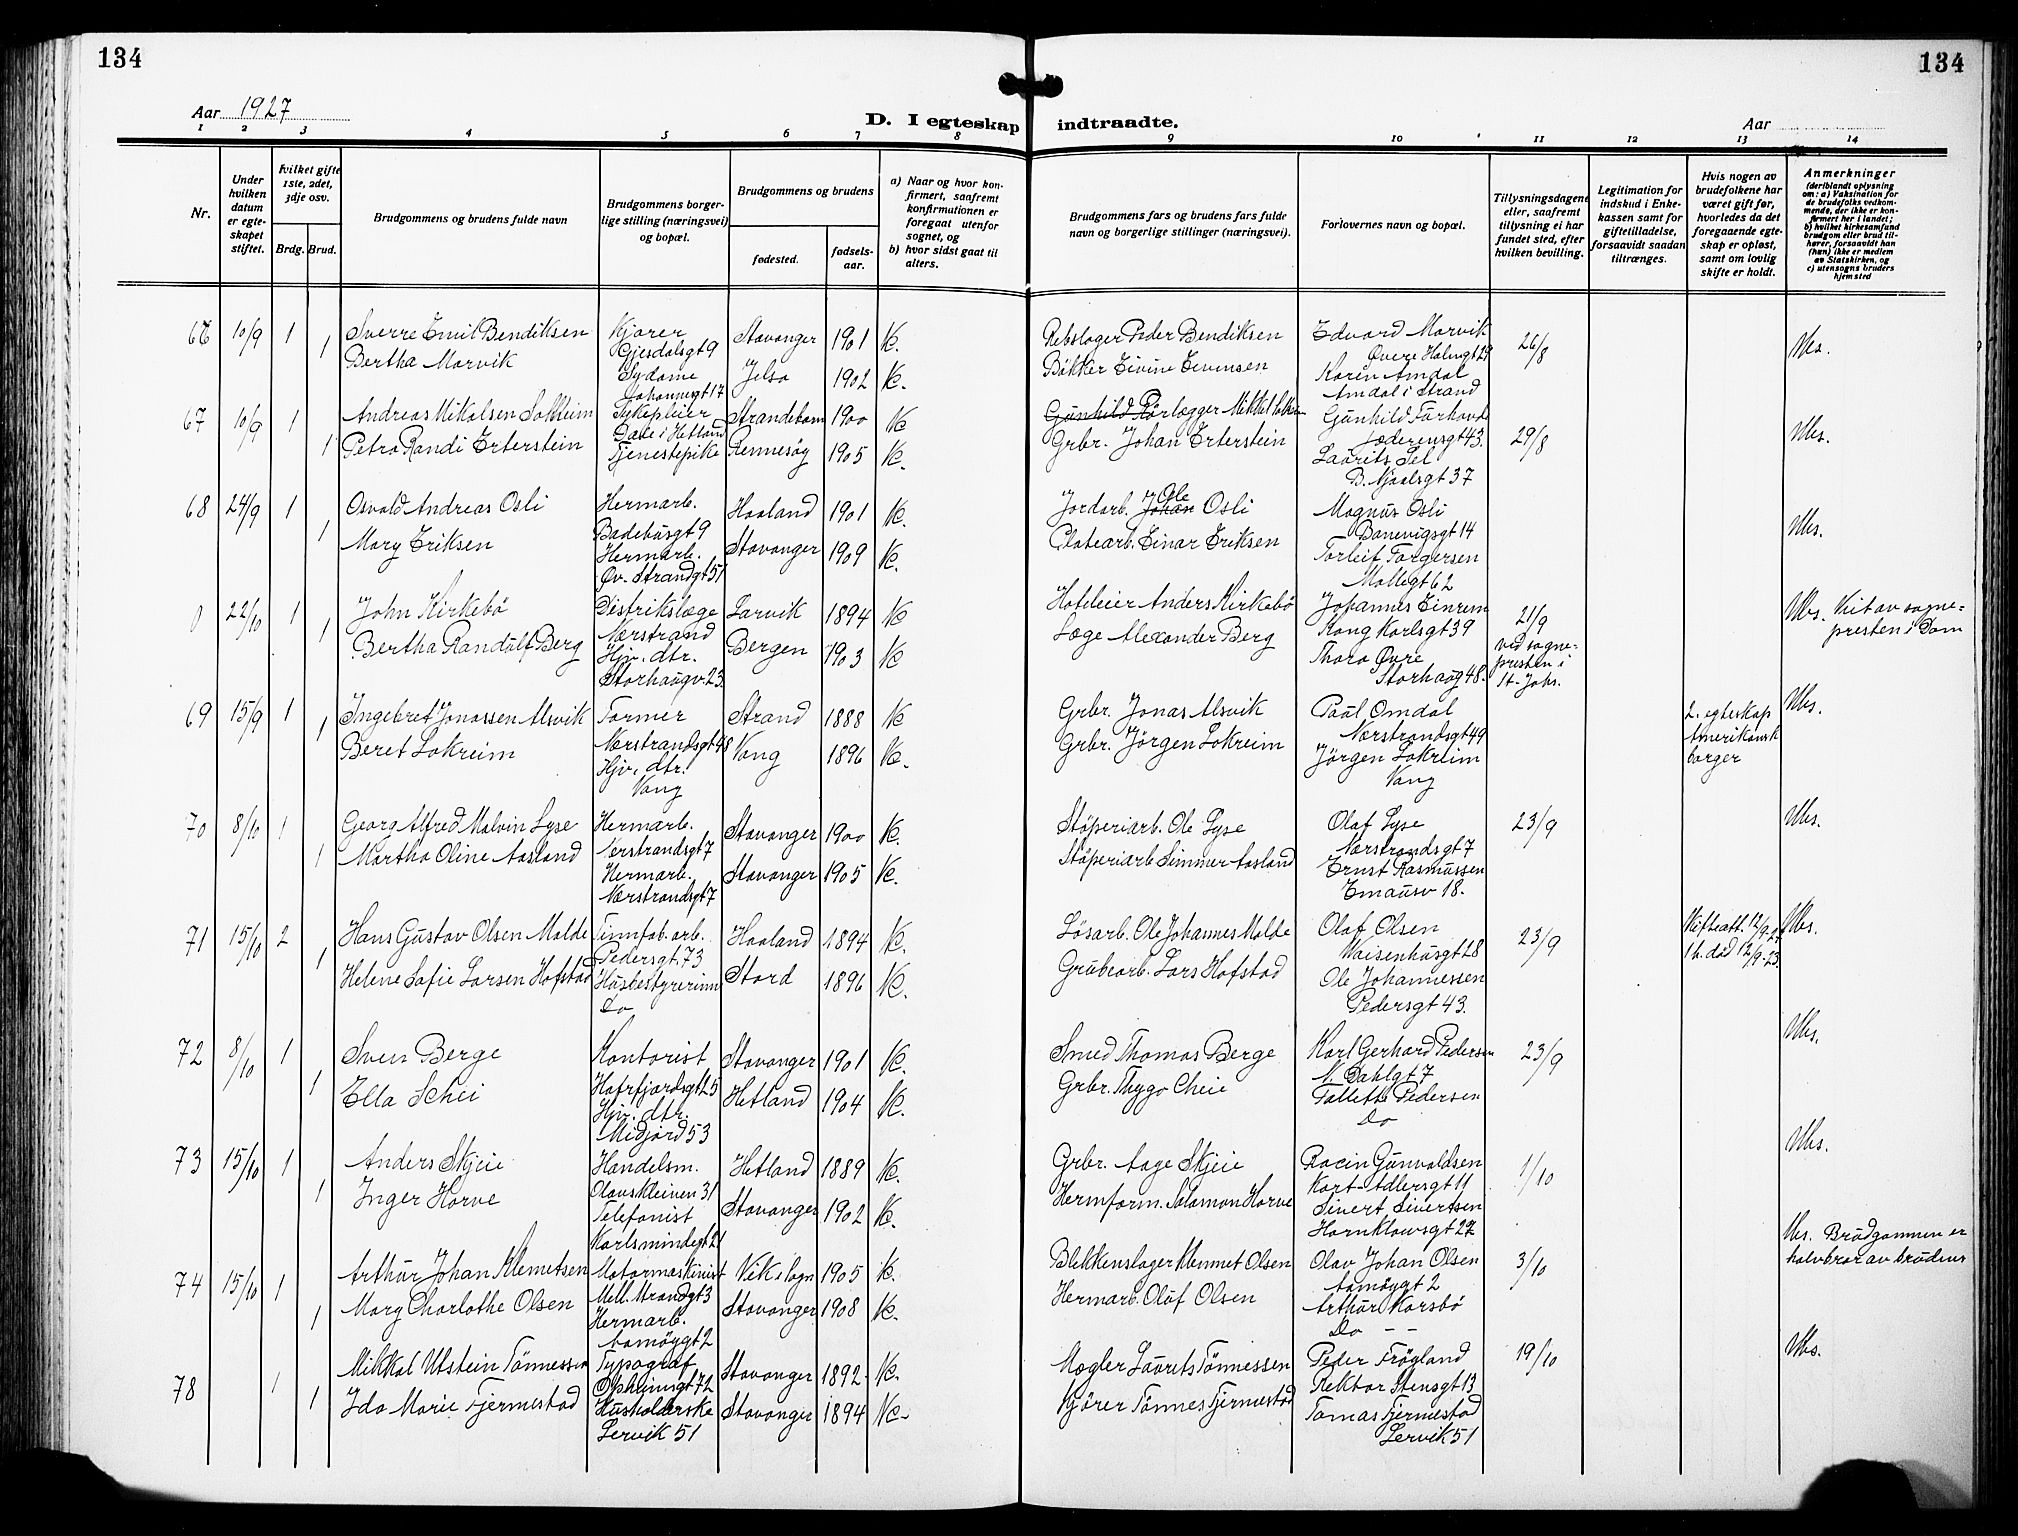 134
134
Aar 1927
D. I egteskap indtraadte.
Aar
1 2 3 4 5 6 7 8 9 10 11 12 13 14
Nr.
Under hvilken datum er egteskapet stiftet.
Hvilket gifte 1ste, 2det, 3dje osv.
Brdg. Brud.
Brudgommens og brudens fulde navn
Brudgommens borgerlige stilling (næringsvei) og bopæl.
Brudgommens og brudens
fødested.
fødselsaar.
a) Naar og hvor konfirmert, saafremt konfirmationen er foregaat utenfor sognet, og
b) hvor sidst gaat til alters.
Brudgommens fars og brudens fars fulde navn og borgerlige stillinger (næringsvei).
Forlovernes navn og bopæl.
Tillysningsdagene eller, saafremt tillysning ei har fundet sted, efter hvilken bevilling.
Legitimation for indskud i Enkekassen samt for giftetilladelse, forsaavidt saadan tiltrænges.
Hvis nogen av brudefolkene har været gift før, hvorledes da det foregaaende egteskap er opløst, samt om lovlig skifte er holdt.
Anmerkninger
(deriblandt oplysning om: a) Vaksination for de brudefolks vedkommende, der ikke er konfirmert her i landet; b) hvilket kirkesamfund brudgom eller brud tilhører, forsaavidt han (hun) ikke er medlem av Statskirken, og c) utensogns bruders hjemsted
66 10/9 1 Sverre Emil Bendiksen Kjører Gjesdalsgt 9 Stavanger 1901 Rebslager Peder Bendiksen Edvard Marvik Øvere Holmgt 29 26/8
1 Bertha Marvik Sydame Johannesgt 17 Jelsa 1902 Bøkker Eivine Eivensen Karen Amdal Amdal i Strand
67 10/9 1 Andreas Mikalsen Solheim Sykepleier Dale i Hetland 1900 Mikkel Gunhild Forhaud Jæderensgt 43 29/8
1 Petra Randi Erterstein Tjenestepike Rennesøy 1905 Grbr. Johan Erterstein Laurits Sel B. Njaalsgt 37
68 24/9 1 Osvald Andreas Osli Hermarb. Badehusgt 9 Haaland 1901 Jordarb. Johan Ole Osli Magnus Osli Banevigsgt 14
1 Mary Eriksen Hermarb. Øv. Strandgt 51 Stavanger 1909 Platearb. Einar Eriksen Torleif Torgersen Møllegt 62
0 22/10 1 John Kirkebö Distriktslæge Nærstrand Larvik 1894 Hoteleier Anders Kirkebö Johannes Einrem Kong Karlsgt 39 21/9 ved sognepresten i St. Johs. Viet av sognepresten i Dom
1 Bertha Randulf Berg Hjv. dtr. Storhaugv. 23. Bergen 1903 Læge Alexander Berg Thora Øvre Storhaug 48.
69 15/9 1 Ingebret Jonassen Alsvik Farmer Nærstrandsgt 48 Strand 1888 Grbr. Jonas Alsvik Paul Omdal Nærstrandsgt 49 2. egteskap Amerikansk borger
1 Beret Lokreim Hjv. dtr. Vang Vang 1896 Grbr. Jörgen Lokreim Jörgen Lokreim Vang
70 8/10 1 Georg Alfred Malvin Lyse Hermarb. Nærstrandsgt 7 Stavanger 1900 Stöperiarb. Ole Lyse Olaf Lyse Nærstrandsgt 7 23/9
1 Martha Oline Aasland Hermarb. Nærstrandsgt 7 Stavanger 1905 Stöperiarb. Simmer Aasland Ernst Rasmussen Emausv 18.
71 15/10 2 Hans Gustav Olsen Malde Tinnfab. arb. Pedersgt. 73 Haaland 1894 Løsarb. Ole Johannes Malde Olaf Olsen Waisenhusgt 28 23/9 Skifteatt. 12/9-27 1 h. död 12/9-23
1 Helene Sofie Larsen Hofstad Husbestyrerinne Do Stord 1896 Grubearb. Lars Hofstad Ole Johannessen Pedersgt 43.
72 8/10 1 Sven Berge Kontorist Hafrfjordsgt 25 Stavanger 1901 Smed Thomas Berge Karl Gerhard Pedersen N. Dahlgt 7 23/9
1 Ella Schei Hjv. dtr. Midjord 53 Hetland 1904 Grbr. Thygo Cheie Pedersen Do
73 15/10 1 Anders Skjeie Handelsm. Olavskleiven 31 Hetland 1889 Grbr. Aage Skjeie Racin Gunvaldsen Kort-Adlersgt 11 1/10
1 Inger Horve Telefonist Karlsmindegt 21 Stavanger 1902 Hermform. Salamon Horve Sivert Sivertsen Hornklowsgt 27
74 15/10 1 Arthur Johan Klemetsen Motormaskinist Mell. Strandgt 3 Vik i Sogn 1905 Blikkenslager Klemmet Olsen Olav Johan Olsen Aamöygt 2 3/10 Brudgommen er halvbror av brudens
1 Mary Charlothe Olsen Hermarb. Aamöygt 2 Stavanger 1908 Hermarb. Oluf Olsen Arthur Korsbö Do - -
78 1 Mikkal Utstein Tönnessen Typograf Opheimsgt 72 Stavanger 1892 Mægler Laurits Tönnessen Peder Fröyland Rektor Stensgt 13 19/10
1 Ida Marie Fjermestad Husholderske Lervik 51 Stavanger 1894 Kjörer Tönnes Fjermestad Tomas Fjermestad Lervik 51